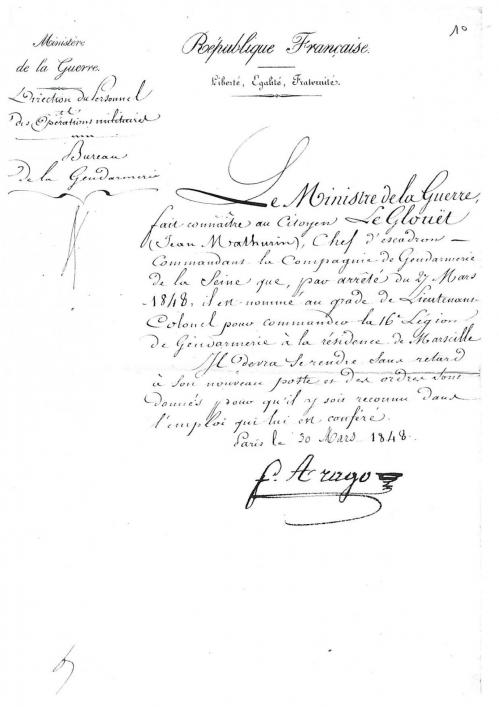 10
Ministère
de la Guerre.
République Française.
Liberté, Egalité, Fraternité.
Direction du Personnel
et
des Opérations militaires
Bureau
de la Gendarmerie
Le Ministre de la Guerre,
fait connaître au Citoyen Le Glouët
(Jean Mathurin), Chef d'escadron –
Commandant la Compagnie de Gendarmerie
de la Seine que, par arrêté du 27 Mars
1848, il est nommé au grade de Lieutenant
Colonel pour commander la 16e Légion
de Gendarmerie à la résidence de Marseille
Il devra se rendre sans retard
à son nouveau poste et des ordres sont
donnés pour qu'il y soit reconnu dans
l'emploi qui lui est conféré.
Paris le 30 Mars 1848.
f. Arago